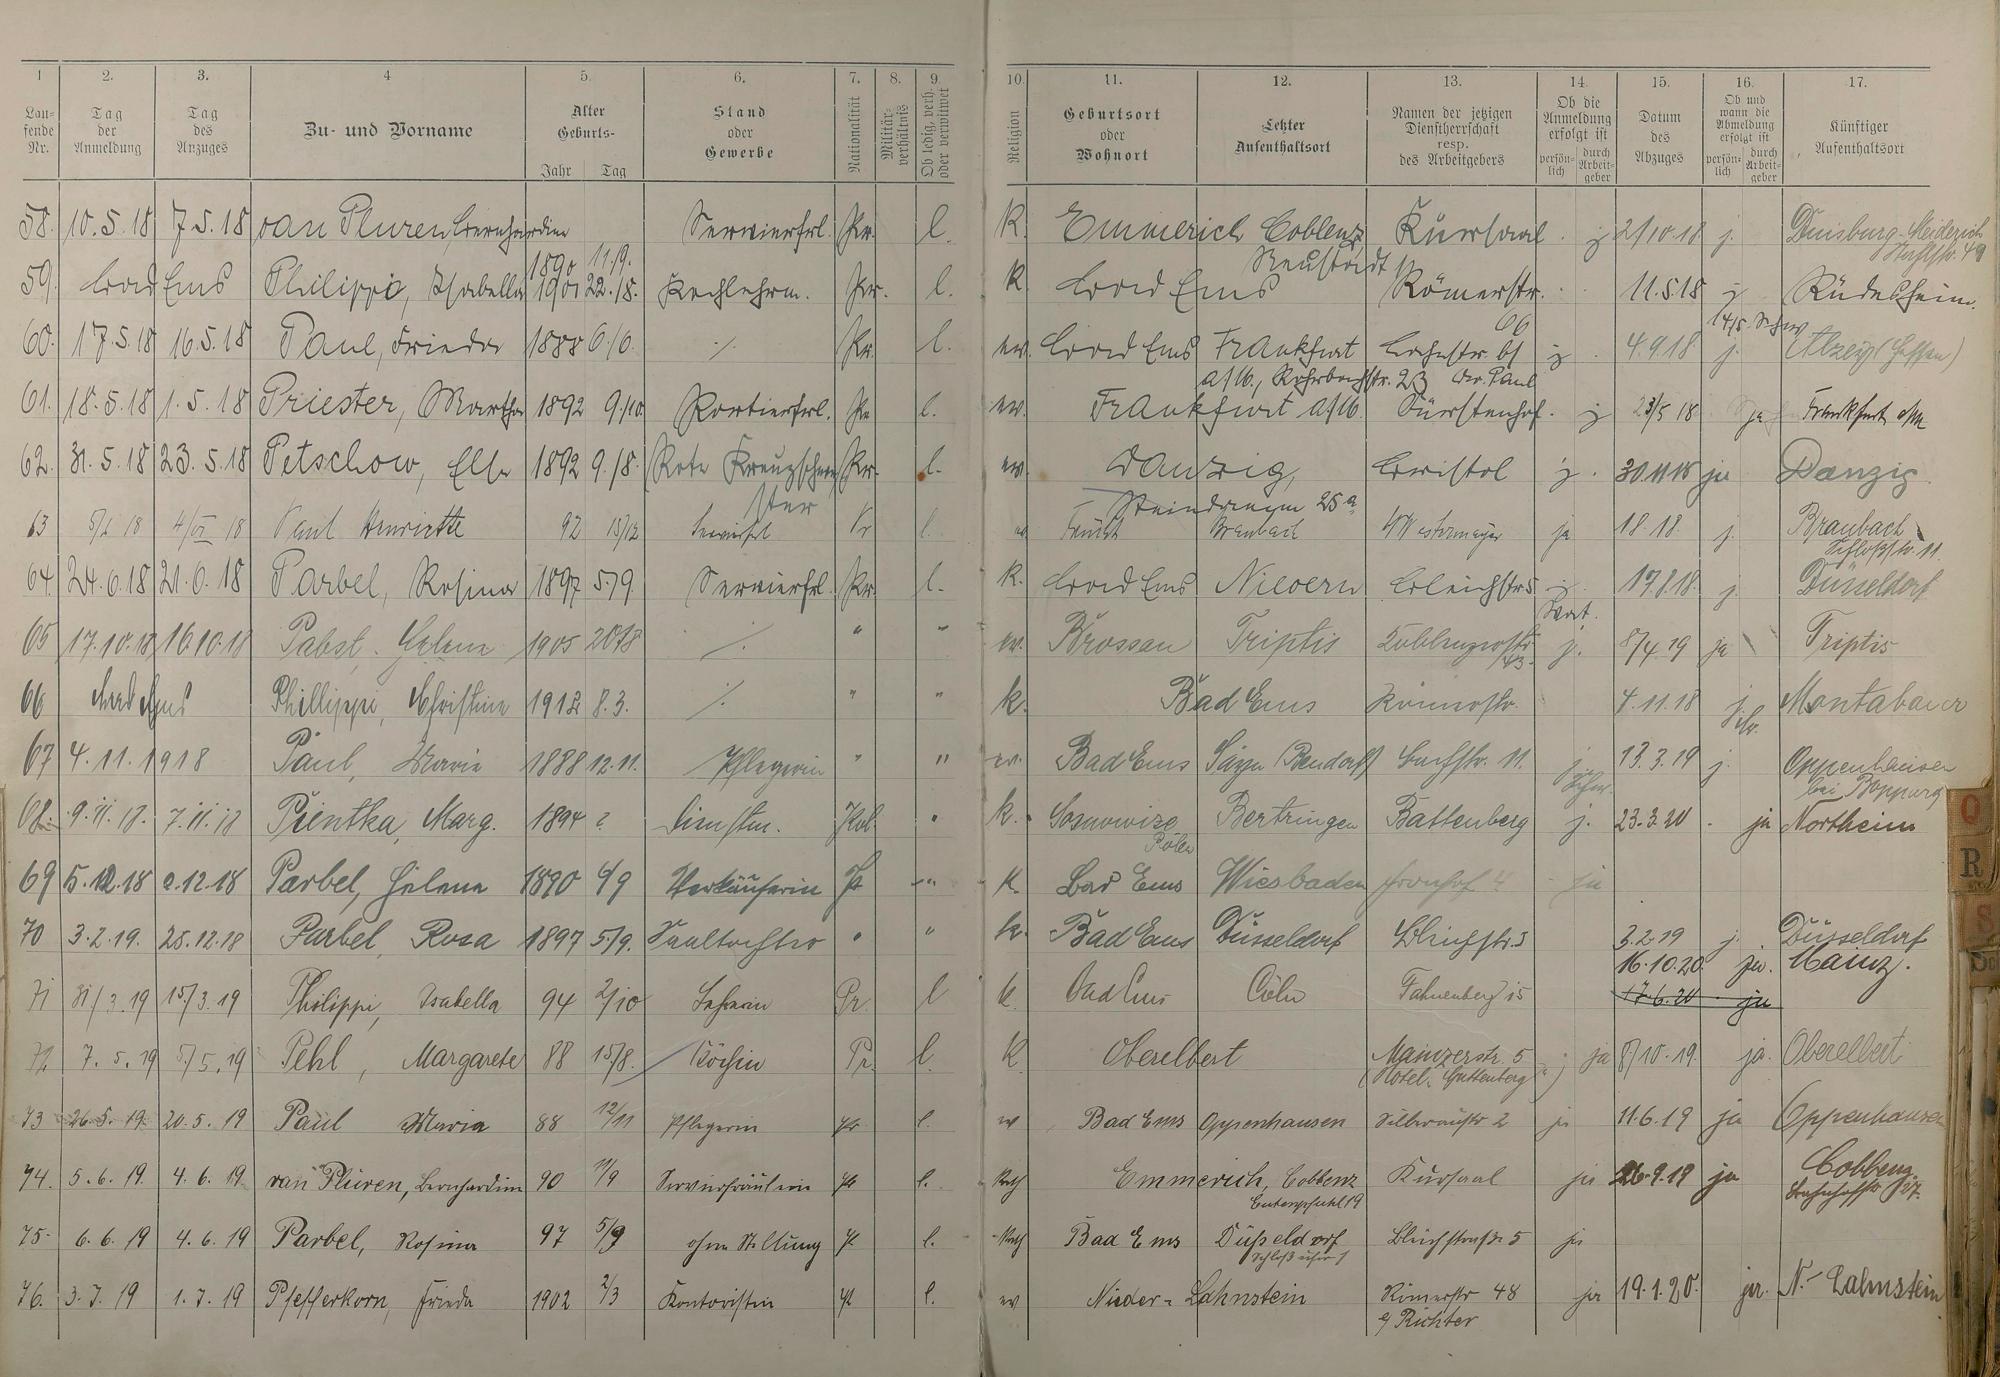 1 2. 3. 4 5. 6. 7. 8. 9. 10. 11. 12. 13. 14. 15. 16. 17.
Laufende Nr. Tag der Anmeldung Tag des Anzuges Zu- und Vorname Alter Geburts- Jahr Tag Stand oder Gewerbe Nationalität Militärverhältnis Ob ledig, verh. oder verwitwet Religion Geburtsort oder Wohnort Letzter Aufenthaltsort Namen der jetzigen Dienstherrschaft resp. des Arbeitgebers Ob die Anmeldung erfolgt ist persönlich durch Arbeitgeber Datum des Abzuges Ob und wann die Abmeldung erfolgt ist persönlich durch Arbeitgeber Künftiger Aufenthaltsort
58. 10.5.18 7.5.18 van Pluren Bernhardine 1890 11/9. Servierfrl. Pr. l. K. Emmerich Coblenz Neustadt Kursaal j 2/10.18 j. Duisburg-Meiderich 49
59. Bad Ems Philippi, Isabella 1901 22./8. Pr. l. K. Bad Ems Römerstr. 66 11.5.18 j Rüdesheim.
60. 17.5.18 16.5.18 Paul, Frieda 1888 6/6. ./. Pr. l. ev. Bad Ems Frankfurt a/M., Rohrbachstr. 23 Lahnstr. 61 Paul j 4.9.18 j. Alzey (Hessen)
61. 18.5.18 1.5.18 Priester, Martha 1892 9/10 Portierfrl. Pr l. ev. Frankfurt a/M. Fürstenhof. j 23/5 18 ja Frankfurt a/M
62. 31.5.18 23.5.18 Petschow, Else 1892 9./8. Rote Kreuzschwester Pr. l. ev. Danzig, Steindamm 25a Bristol j. 30.11.18 ja Danzig
63 18 18 Paul Henriette 92 15/12 Servierfrl Pr l. ev Frücht Braubach Westermayer ja 18. 18. j. Braubach Schloßstr. 11
64. 24.6.18 21.6.18 Parbel, Rosina 1897 5/9 Servierfrl. Pr. l. K. Bad Ems Nievern Bleichstr 5 j. 17.8.18. j. Düsseldorf
65 17.10.18 16.10.18 Pabst. Helene 1905 20/8 ./. " " ev. Brossen Triptis Coblenzerstr. 43. j. 8/4.19 ja Triptis
66 Bad Ems Phillippi, Christine 1912 8.3. ./. " " k. Bad Ems Römerstr. 4.11.18 j. Montabaur
67 4.11.1918 Paul, Marie 1888 12.11. Pflegerin " " ev. Bad Ems Sayn (Bendorf) 11. j. 13.3.19 j. Oppenhausen bei Boppard
68. 9.11.18. 7.11.18 Pientka, Marg. 1894 ? Dienstm. Pol. " k. Sosnowize Polen Bertringen Battenberg j. 23.3.20 ja Northeim
69 5.12.18 2.12.18 Parbel, Helene 1890 4/9 Verkäuferin Pr " K. Bad Ems Wiesbaden Fronhof 4 ja
70 3.2.19. 25.12.18 Parbel, Rosa 1897 5/9. Saaltochter " " k. Bad Ems Düsseldorf Bleichstr. 5 3.2.19 j. Düsseldorf
71 31/3.19 15/3.19 Philippi, Isabella 94 2/10 Pr. l K Bad Ems Cöln Fahnenberg 15 16.10.20. ja. Mainz. 17.6.20 ja
72. 7.5.19 5/5.19 Pehl, Margarete 88 15/8. Köchin Pr. l. K Oberelbert Mainzerstr. 5 (Hotel "Guttenberg") ja 8/10.19. ja. Oberelbert
73 26.5.19. 20.5.19 Paul Maria 88 12/11 Pflegerin Pr. l. ev Bad Ems Oppenhausen Silberaustr 2 ja 11.6.19 ja Oppenhausen
74. 5.6.19. 4.6.19. van Plüren, Bernhardine 90 11/9 Servierfräulein Pr l. Kath Emmerich, Coblenz 19 Kursaal ja 26.9.19 ja Coblenz, Bahnhofstr 37.
75. 6.6.19 4.6.19 Parbel, Rosina 97 5/9 ohne Stellung Pr. l. Kath Bad Ems Düßeldorf Bleichstraße 5 ja
76. 3.7.19 1.7.19 Pfefferkorn, Frieda 1902 2/3 Kontoristin Pr l. ev Nieder-Lahnstein Römerstr 48 Richter ja 19.1.20. ja. N.-Lahnstein
Q
R
S